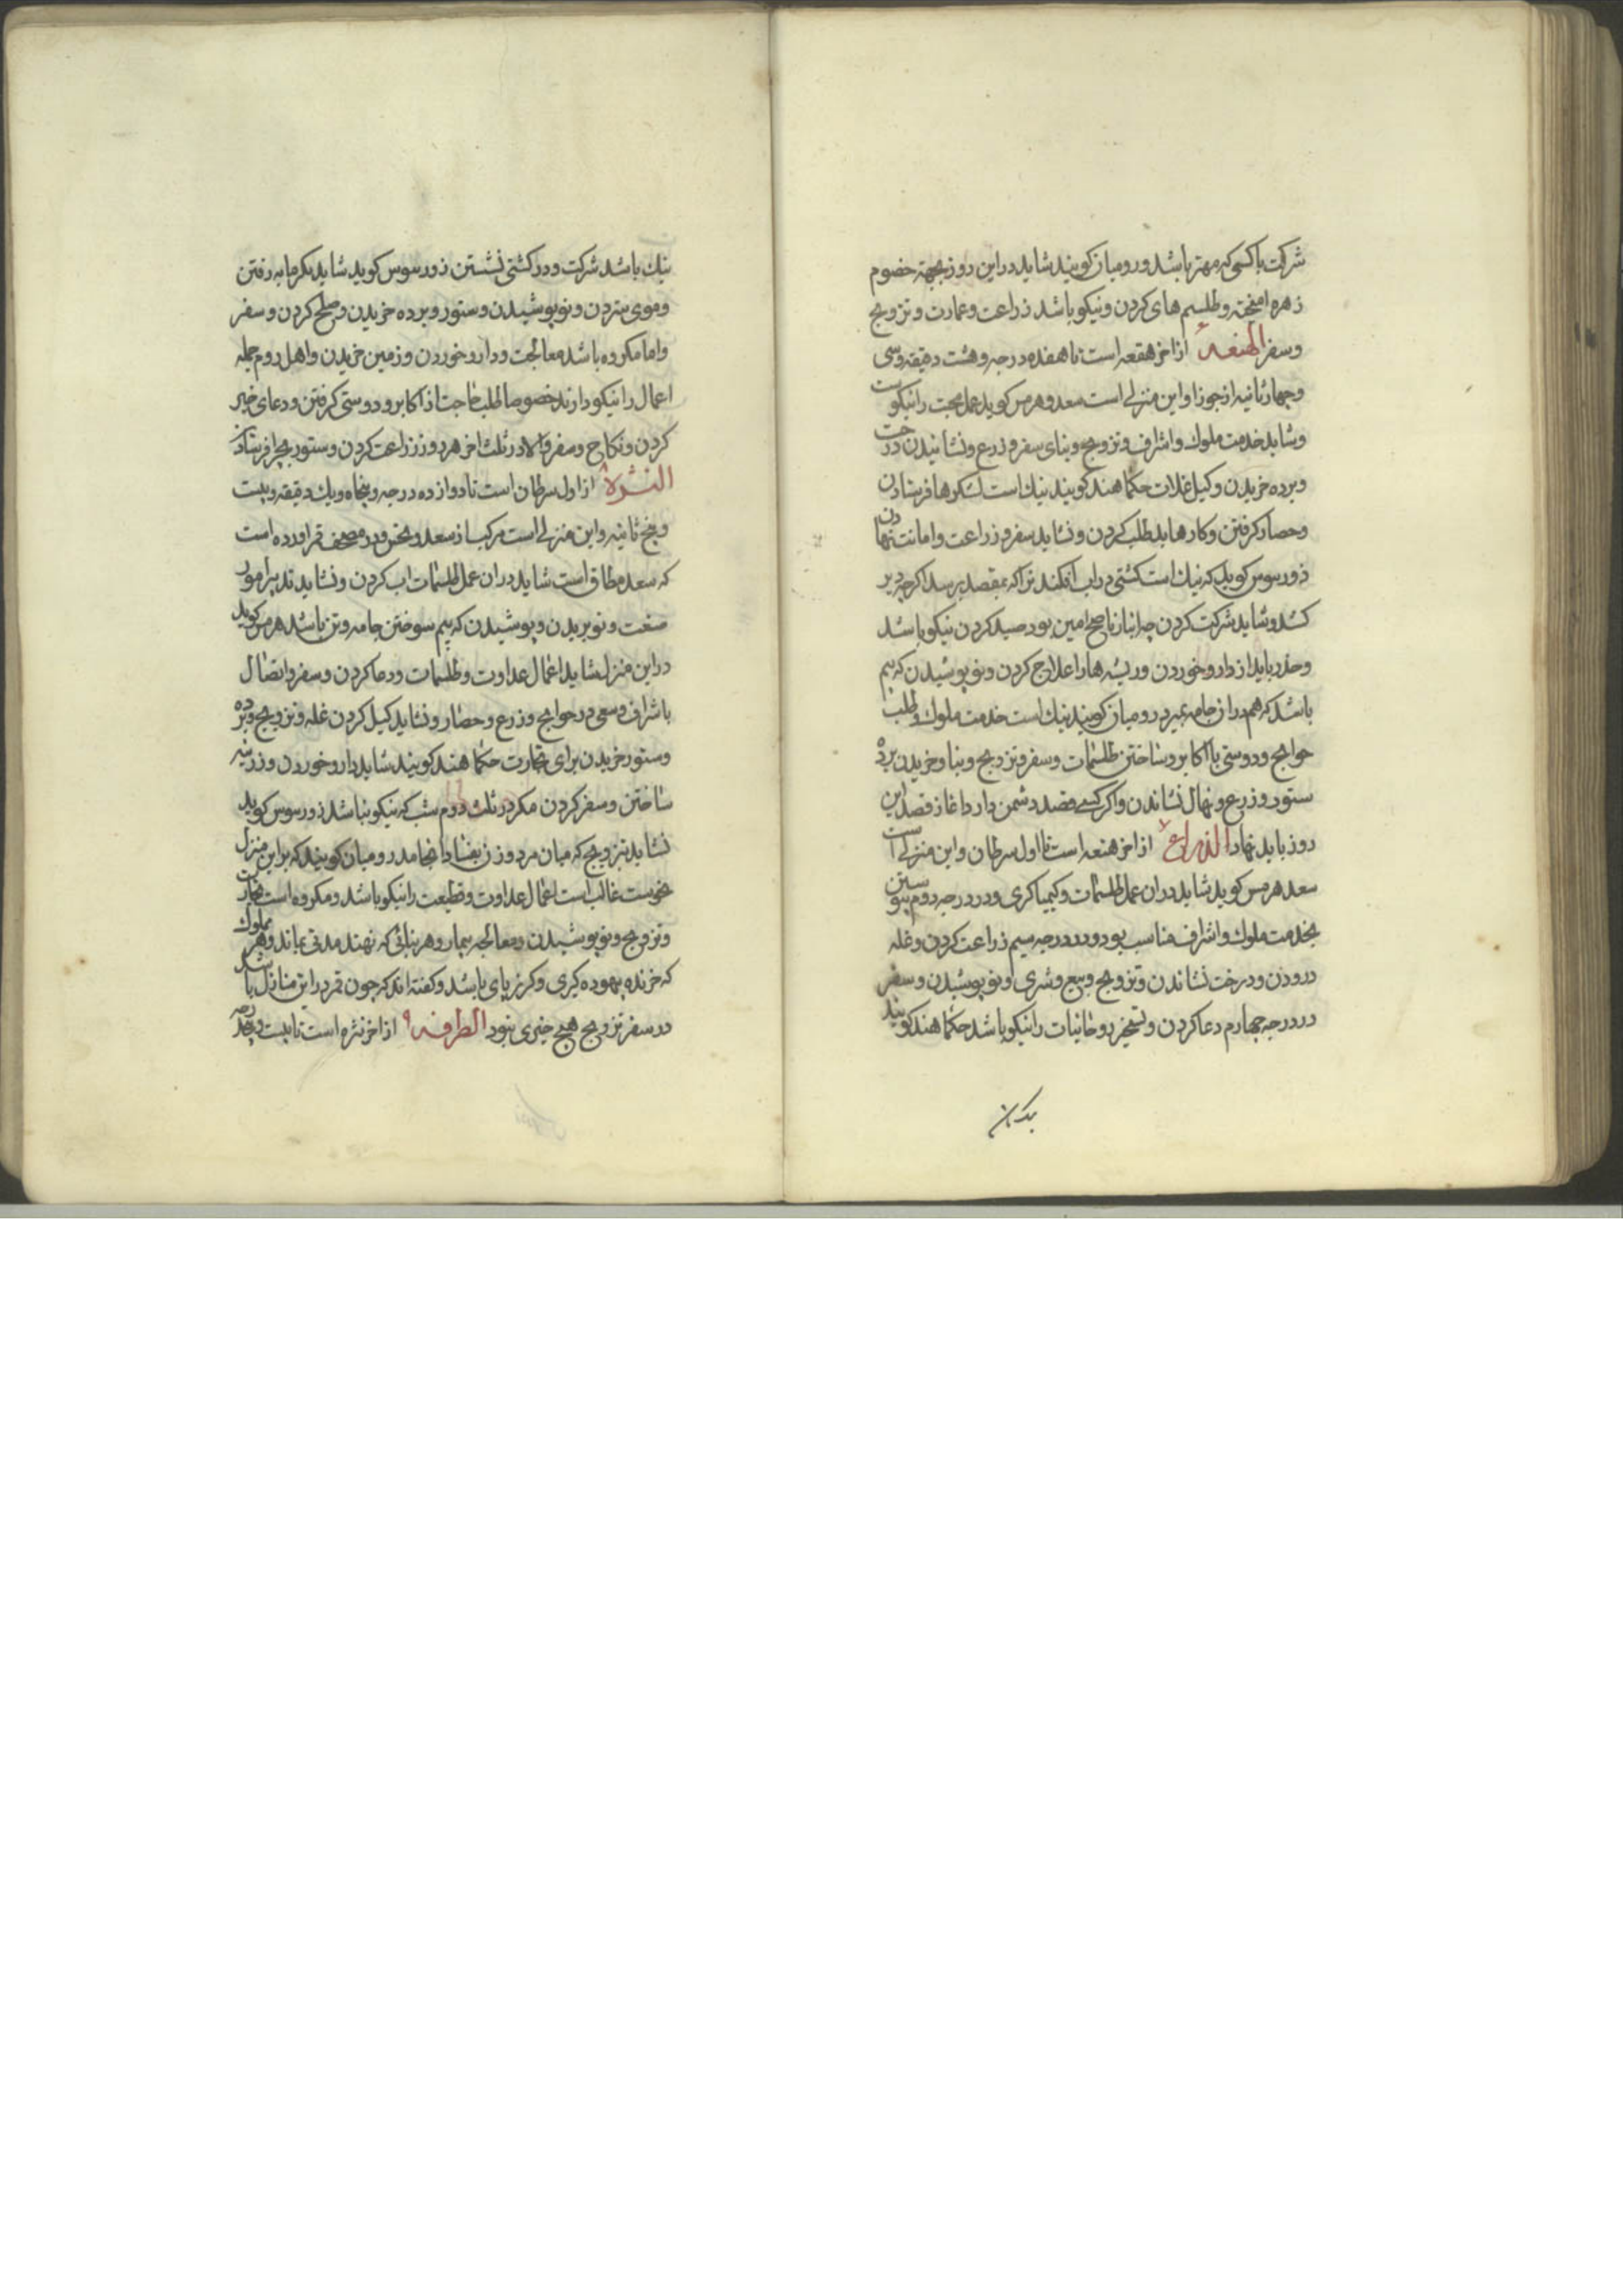 شرکت با کسی که مهتر باشد و رومیان کویند شاید در این روز بجهة خصوم
زهره امیخته و طلسم های کردن و نیکو باشد زراعت و عمارت و تزویج
وسفر الهنعه ٦ از اخر هقعه است تا هفده درجه و هشت دقیقه وسی
وچهار ثانیه از جوزا و این منزلی است سعد و هرمس کوید عمل محبت را نیکوست
وشاید خدمت ملوک واشراف وتزویج وبنای سفر وزرع ونشانیدن درخت
وبرده خریدن وکیل غلات حکما هند کویند نیک است لشکرها فرستادن
وحصار کرفتن وکارها بد طلب کردن ونشاید سفر وزراعت وامانت نهادن
ذورسوس کوید که نیک است کشتی در اب افکند ترا که بمقصد برسد اکرچه دیر
کشد وشاید شرکت کردن چه انباز ناصح امین بود صید کردن نیکو باشد
وحذر باید از دارو خوردن وریشها را علاج کردن ونو پوشیدن که بیم
باشد که هم در ان جامه بمیرد رومیان کویند نیک است خدمت ملوک وطلب
حوایج ودوستی با اکابر وساختن طلسمات وسفر وتزویج وبنا وخریدن برده
ستور وزرع ونهال نشاندن واکر کسی قصد دشمن دارد اغاز قصد این
روز باید نهاد الذراع ٧ از اخر هنعه است تا اول سرطان واین منزلی است
سعد هرمس کوید شاید در ان عمل طلسمات وکیمیاکری ودر درجه دوم پیوستن
بخدمت ملوک واشراف مناسب بود ودر درجه سیم زراعت کردن وغله
درودن ودرخت نشاندن وتزویج وبیع وشری ونو پوشیدن وسفر
در درجه چهارم دعا کردن وتسخیر روحانیات را نیکو باشد حکما هند کویند
نیک باشد شرکت ودر کشتی نشستن ذورسوس کوید شاید بکرمابه رفتن
وموی ستردن ونو پوشیدن وستور وبرده خریدن وصلح کردن وسفر
واما مکروه باشد معالجت ودارو خوردن وزمین خریدن واهل روم جمله
اعمال را نیکو دارند خصوصا طلب حاجت از اکابر ودوستی کرفتن ودعای خیر
کردن ونکاح وسفر والا در ثلث اخر هر روز زراعت کردن وستور بچرا فرستادن
النثرة ٨ از اول سرطان است تا دوازده درجه وپنجاه ویک دقیقه وبیست
وپنج ثانیه واین منزلی است مرکب از سعد ونحس ودر مصحف قمر اورده است
که سعد مطلق است شاید در ان عمل طلسمات اب کردن ونشاید تدبیر امور
صنعت ونو بریدن وپوشیدن که بیم سوختن جامه وتن باشد هرمس کوید
در این منزل شاید اعمال عداوت وطلسمات ودعا کردن وسفر واتصال
باشراف وسعی در حوایج وزرع وحصار ونشاید کیل کردن غله وتزویج وبرده
وستور خریدن برای تجارت حکما هند کویند شاید دارو خوردن وزرینه
ساختن وسفر کردن مکر در ثلث دوم شب که نیکو نباشد ذورسوس کوید
نشاید تزویج که میان مرد وزن بفساد انجامد رومیان کویند که بر این منزل
نحوست غالب است اعمال عداوت وقطیعت را نیکو باشد ومکروه است تجارت
وتزویج ونو پوشیدن ومعالجه بیمار وهر بنائی که نهند مدتی بماند وهر مملوک
که خرند بیهوده کیری وکریزپای باشد وکفته اند که چون قمر در این منازل باشد
در سفر تزویج هیچ خیری نبود الطرفه ٩ از اخر نثره است تا بیست وپنج درجه